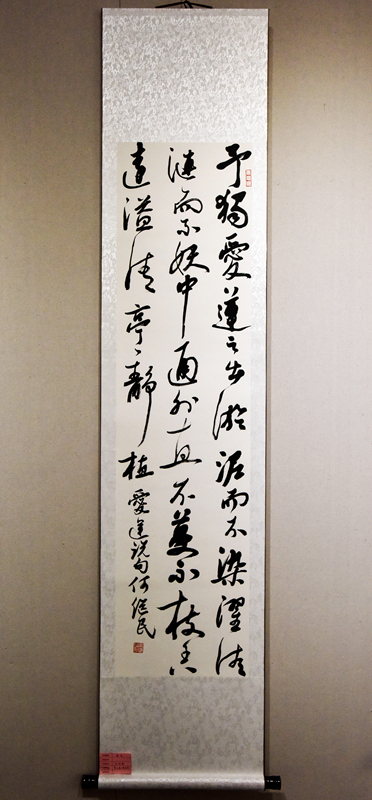 予独愛蓮之出淤泥而不染濯清
漣而不妖中通外直不蔓不枝香
遠溢清亭亭静植愛蓮说句何继民